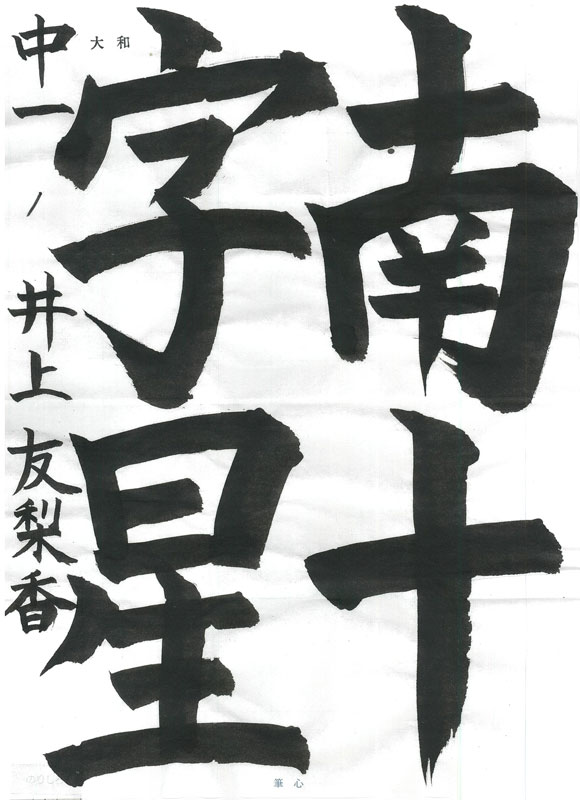 南十
字星
中一 井上友梨香
大和
筆心